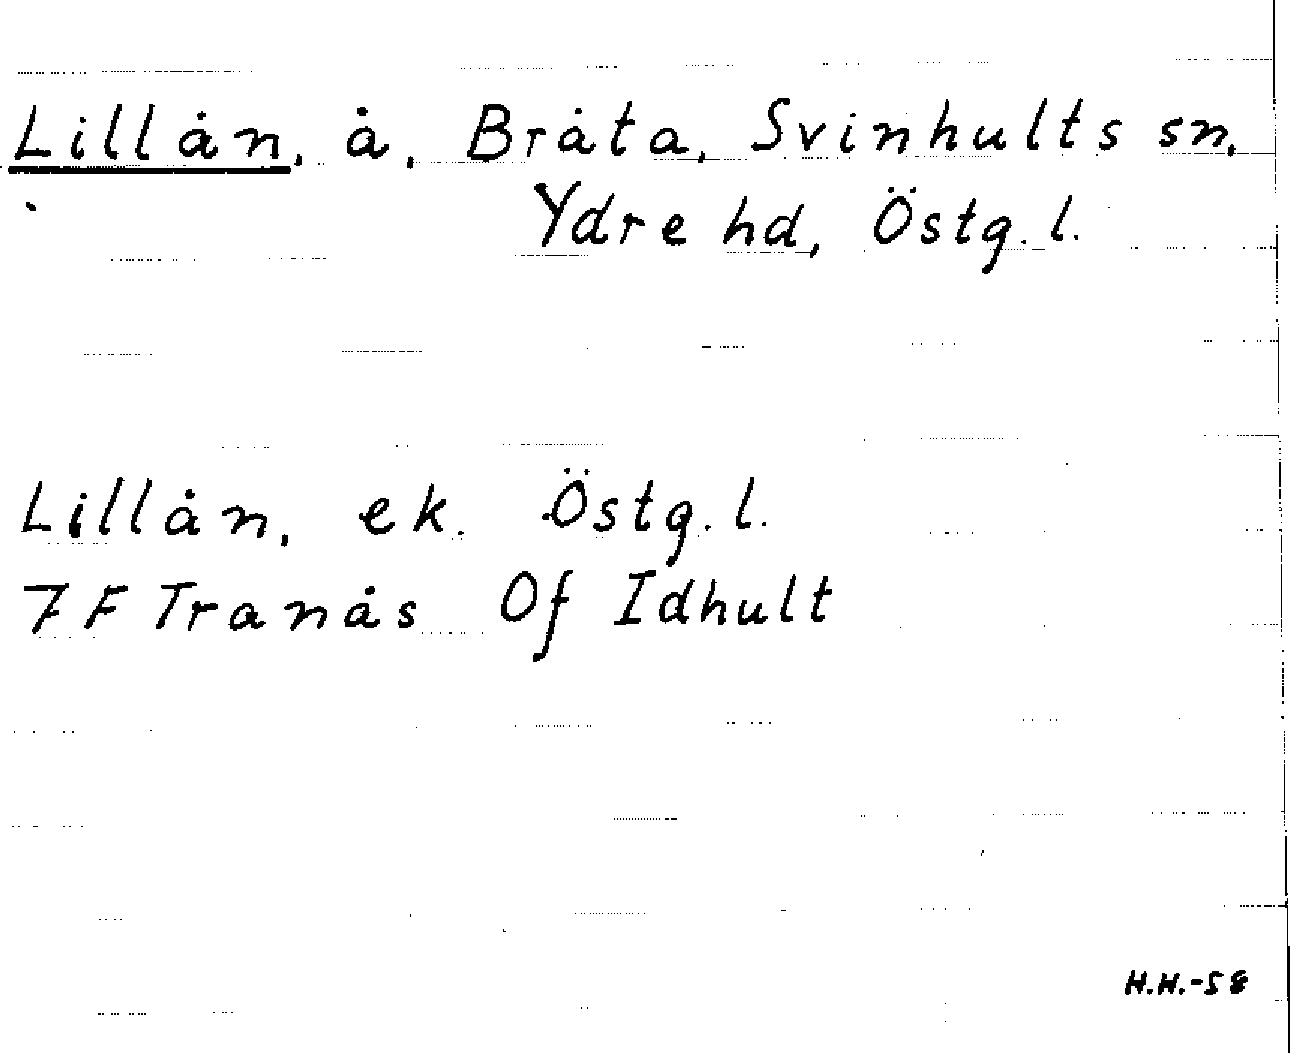 Lillån, å, Bråta, Svinhults sn,
Ydre hd, Östg. l.
Lillån, ek. Östg. l.
7 F Tranås Of Idhult
H.H.-58